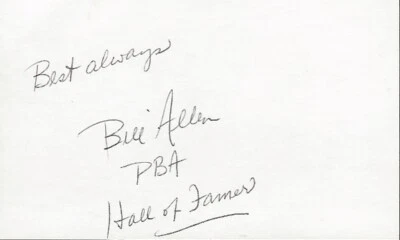 Best always
Bill Allen
PBA
Hall of Famer